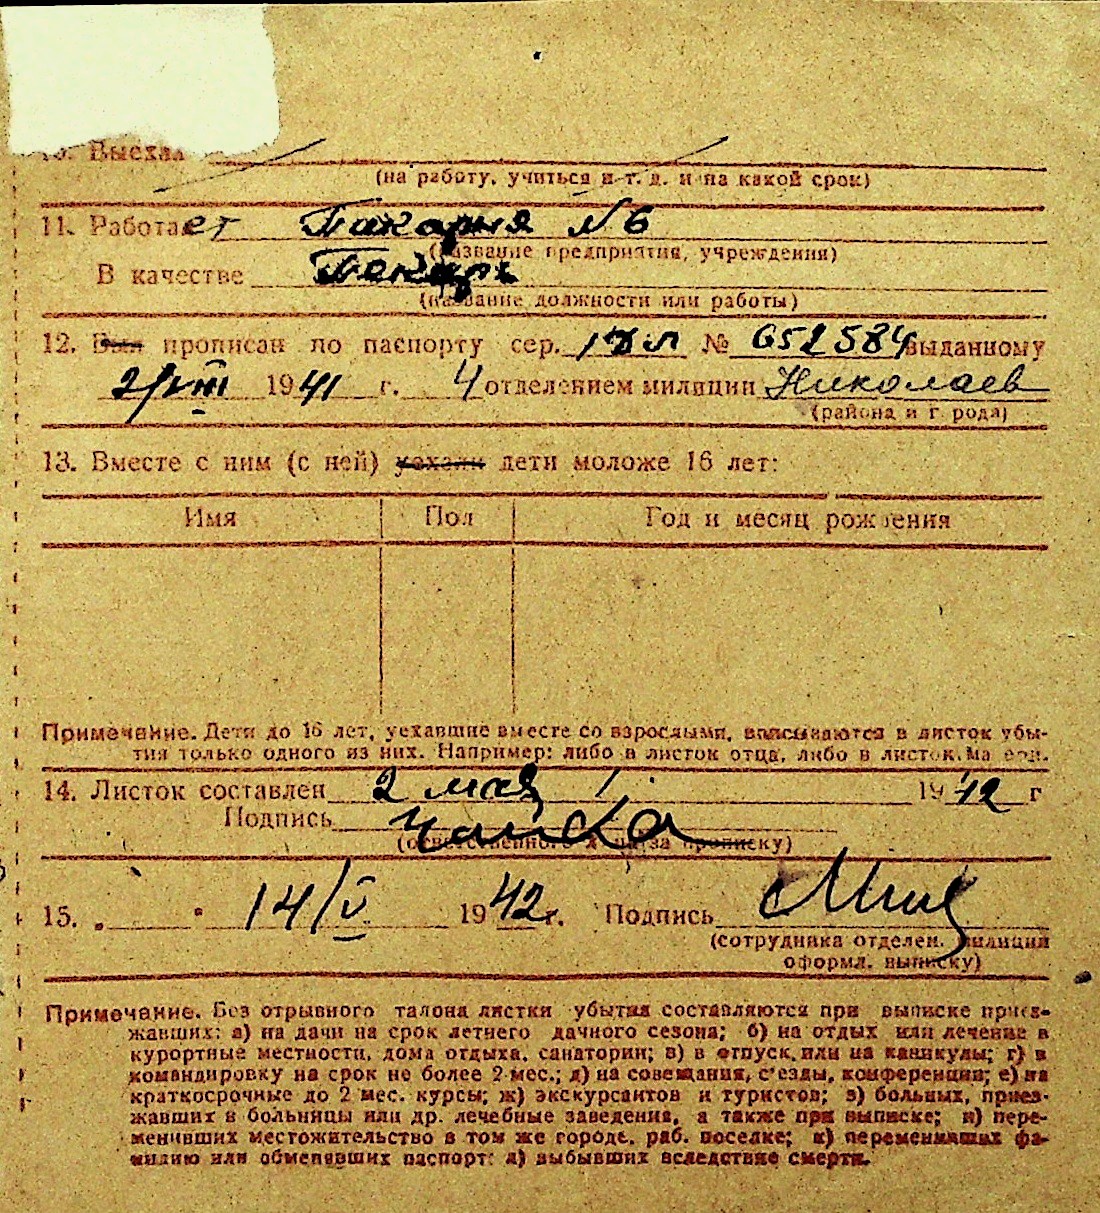 10. Выехал
(на работу, учиться и т. д. и на какой срок)
11. Работает Пекарня №6
(название предприятия, учреждения)
В качестве Пекарь
(название должности или работы)
12. Был прописан по паспорту сер. № 652584 выданному
2/VIII 1941 г. 4 отделением милиции Николаев
(района и г рода)
13. Вместе с ним (с ней) уехали дети моложе 16 лет:
Имя Пол Год и месяц рождения
Примечание. Дети до 16 лет, уехавшие вместе со взрослыми, вписываются в листок убы-
тия только одного из них. Например: либо в листок отца, либо в листок ма ери.
14. Листок составлен 2 мая 1942 г
Подпись
(ответственного за прописку)
15. „ “ 14/V 1942 г. Подпись
(сотрудника отделен. милиции
оформл. выписку)
Примечание. Без отрывного талона листки убытия составляются при выписке приез-
жавших: а) на дачи на срок летнего дачного сезона; б) на отдых или лечение в
курортные местности, дома отдыха, санатории; в) в отпуск или на каникулы; г) в
командировку на срок не более 2 мес.; д) на совещания, с'езды, конференции; е) на
краткосрочные до 2 мес. курсы; ж) экскурсантов и туристов; з) больных, приез-
жавших в больницы или др. лечебные заведения, а также при выписке; и) пере-
менивших местожительство в том же городе, раб. поселке; к) переменивших фа-
милию или обменявших паспорт: л) выбывших вследствие смерти.